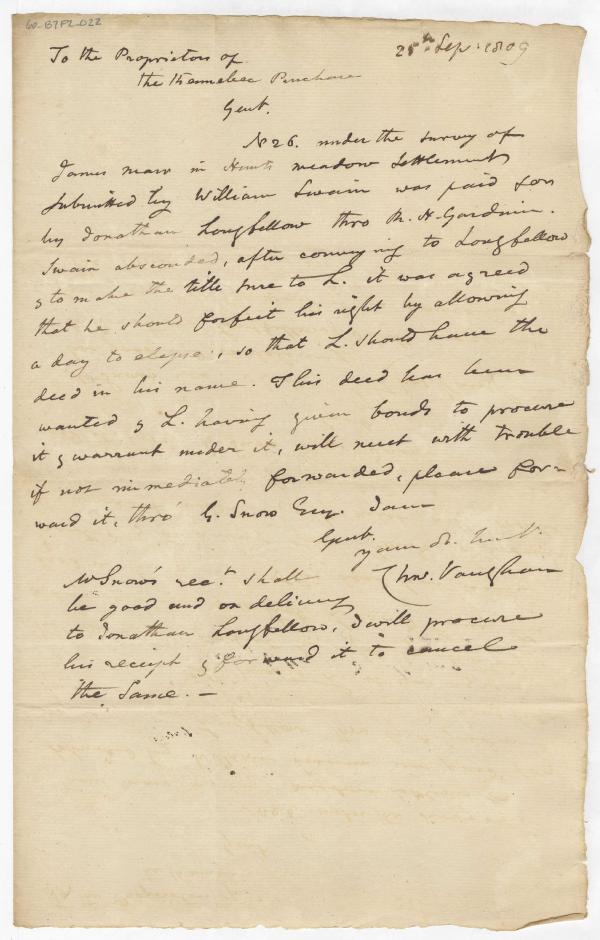 60-B7F2-022
25th Sep: 1809
To the Proprietors of
the Kennebec Purchase
Gent.
No 26. under the survey of
James marr in Hunts meadow Settlement
submitted by William Swain was paid for
by Jonathan Longfellow thro R. H. Gardiner.
Swain absconded, after conveying to Longfellow
& to make the title sure to L. it was agreed
that he should forfeit his right by allowing
a day to elapse, so that L. should have the
deed in his name. This deed has been
wanted & L. having given bonds to procure
it & warrant under it, will meet with trouble
if not immediately forwarded, please for-
ward it, thro' G. Snow Esq. I am
Gent.
your
Chas. Vaughan
Mr Snow's rect. shall
be good and on delivery
to Jonathan Longfellow, I will procure
his receipt & forward it to cancel
the same. —